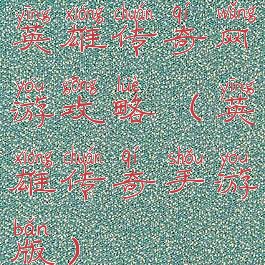 yīng xióng chuán qí wǎng
英雄传奇网
yóu gōng lüè yīng
游攻略（英
xióng chuán qí shǒu yóu
雄传奇手游
bǎn
版）